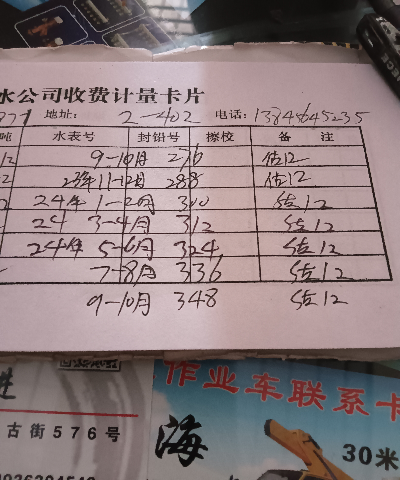 水公司收费计量卡片
地址: 2-402 电话: 13845645235
吨 水表号 封铅号 擦校 备 注
12 9-10月 276 估12
2 23年11-12月 288 估12
24年 1-2月 300 估12
24 3-4月 312 估12
24年 5-6月 324 估12
7-8月 336 估12
9-10月 348 估12
进
古街576号
作业车联系卡
海
30米